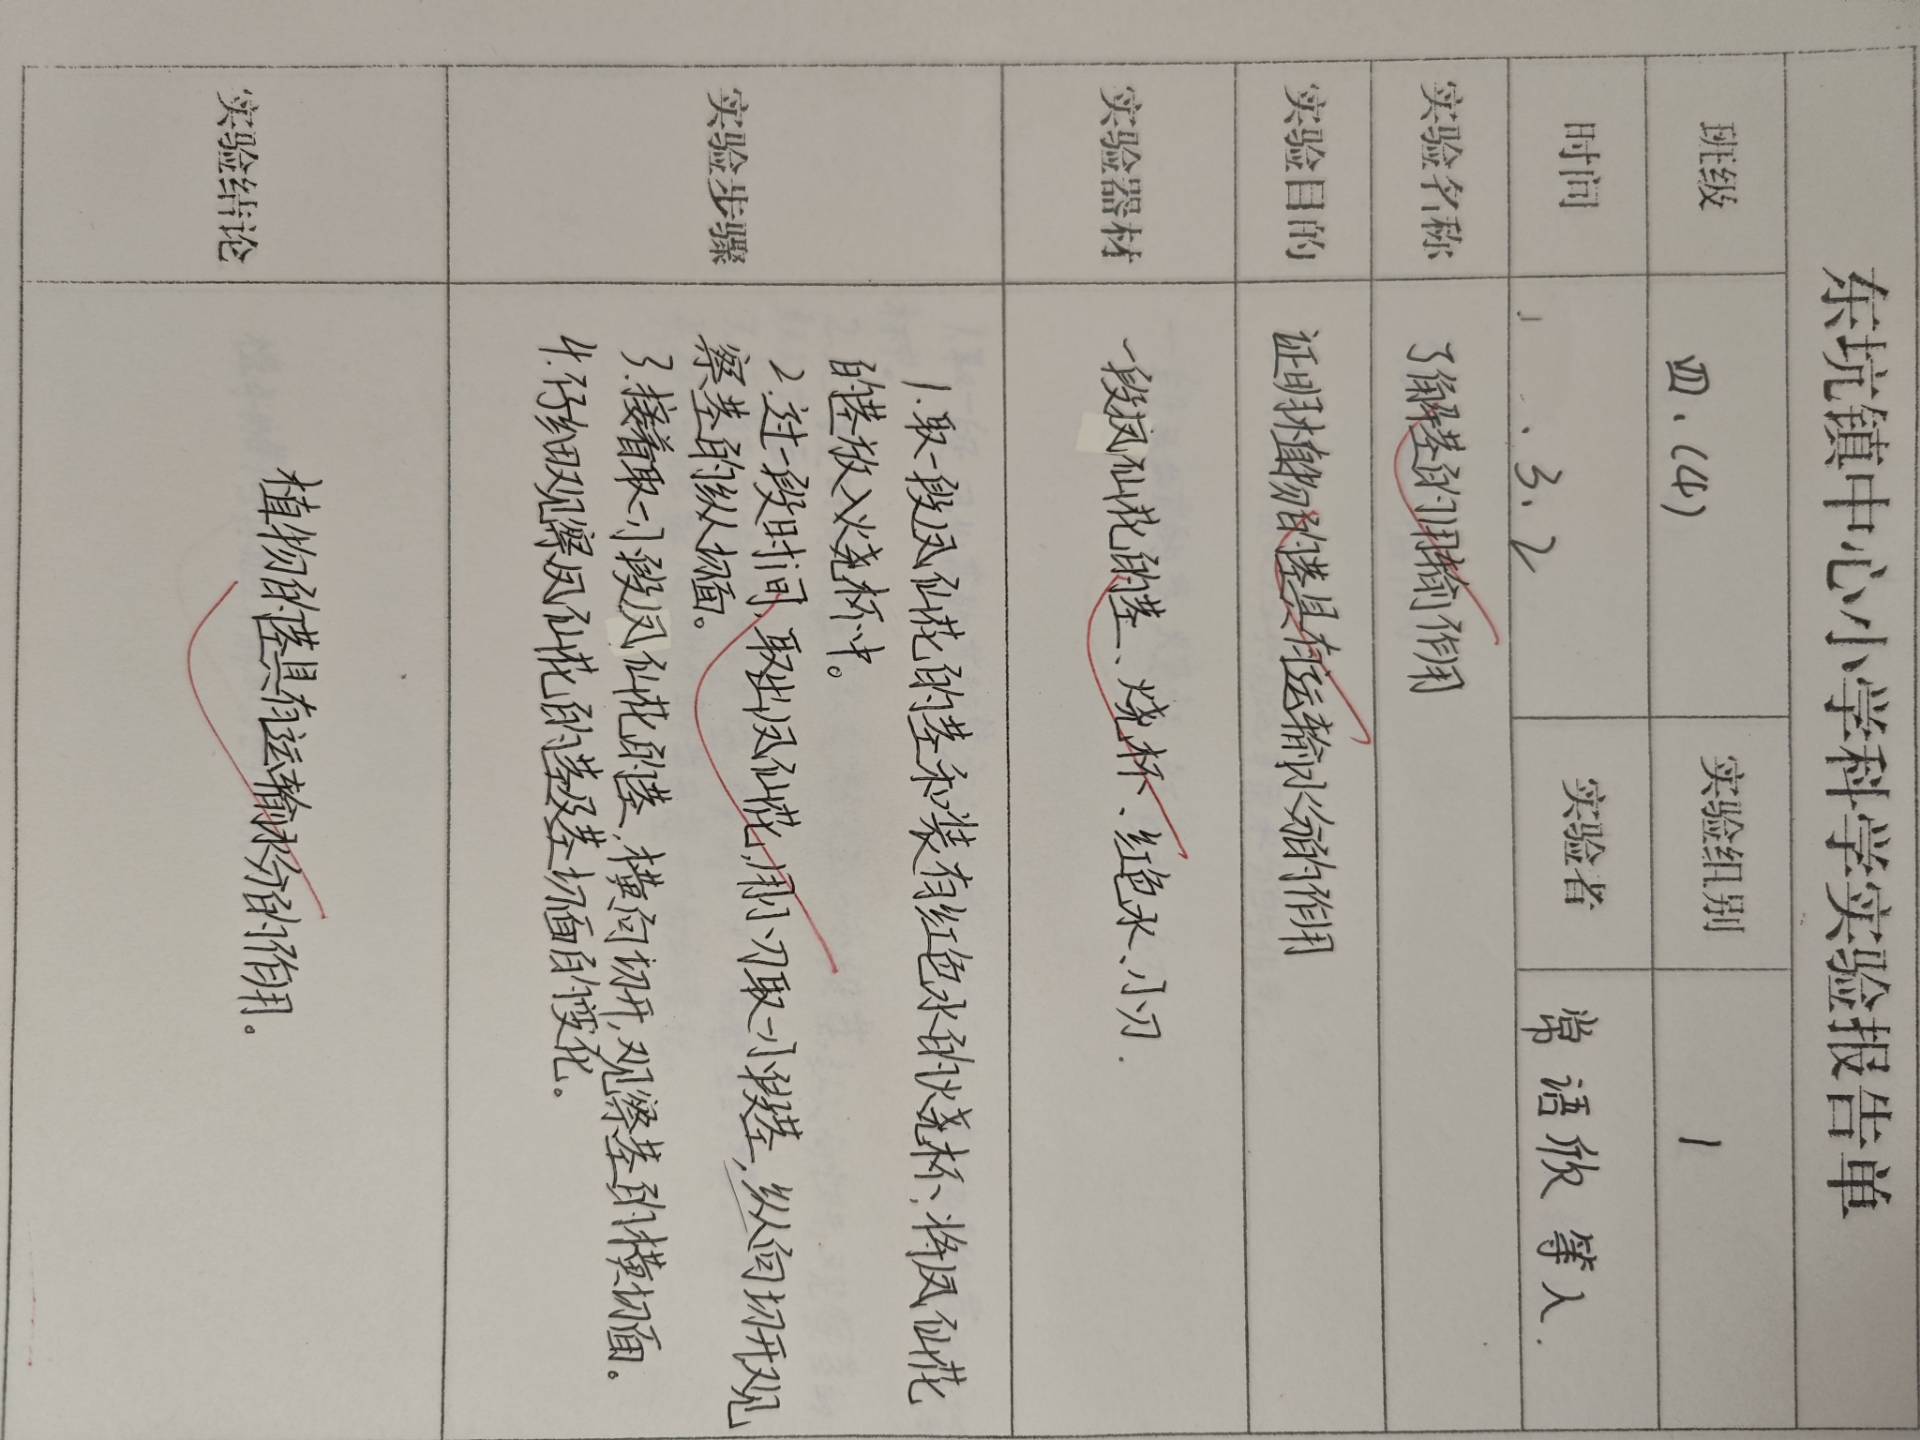 东坑镇中心小学科学实验报告单
班级 四、(4) 实验组别 1
时间 3、2 实验者 常语欣 等人.
实验名称 了解茎的用输作用
实验目的 证明植物的茎具有运输水份的作用
实验器材 一段凤仙花的茎、烧杯、红色水、小刀.
实验步骤 1.取一段凤仙花的茎和装有红色水的烧杯、将凤仙花
的茎放入烧杯中。
2.过一段时间,取出凤仙花,用小刀取一小段茎,纵向切开观
察茎的纵切面。
3.接着取一小段凤仙花的茎,横向切开,观察茎的横切面。
4.仔细观察凤仙花的茎及茎切面的变化。
实验结论 植物的茎具有运输水分的作用。